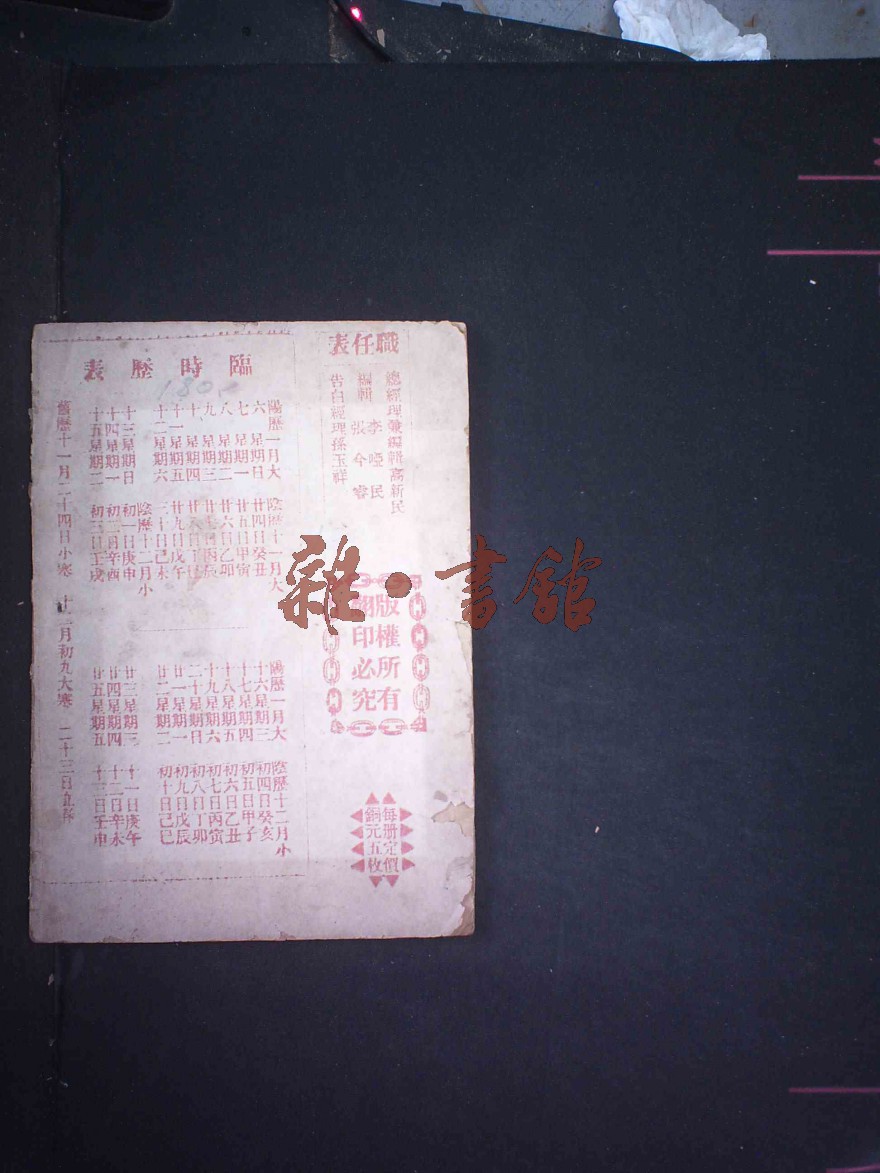 職任表
總經理兼編輯高新民
編輯 李啞民
張今睿
告白經理孫玉祥
版權所有
翻印必究
每册定價
銅元五枚
臨時歷表
180
陽歷一月大
六 星期日
七 星期一
八 星期二
九 星期三
十 星期四
十一星期五
十二星期六
十三星期日
十四星期一
十五星期二
陰歷十一月大
廿四日癸丑
廿五日甲寅
廿六日乙卯
廿七日丙辰
廿八日丁巳
廿九日戊午
三十日己未
陰歷十二月小
初一日庚申
初二日辛酉
初三日壬戌
陽歷一月大
十六星期三
十七星期四
十八星期五
十九星期六
二十星期日
廿一星期一
廿二星期二
廿三星期三
廿四星期四
廿五星期五
陰歷十二月小
初四日癸亥
初五日甲子
初六日乙丑
初七日丙寅
初八日丁卯
初九日戊辰
初十日己巳
十一日庚午
十二日辛未
十三日壬申
舊歷十一月二十四日小寒 十二月初九大寒 二十三日立春
雜·書館